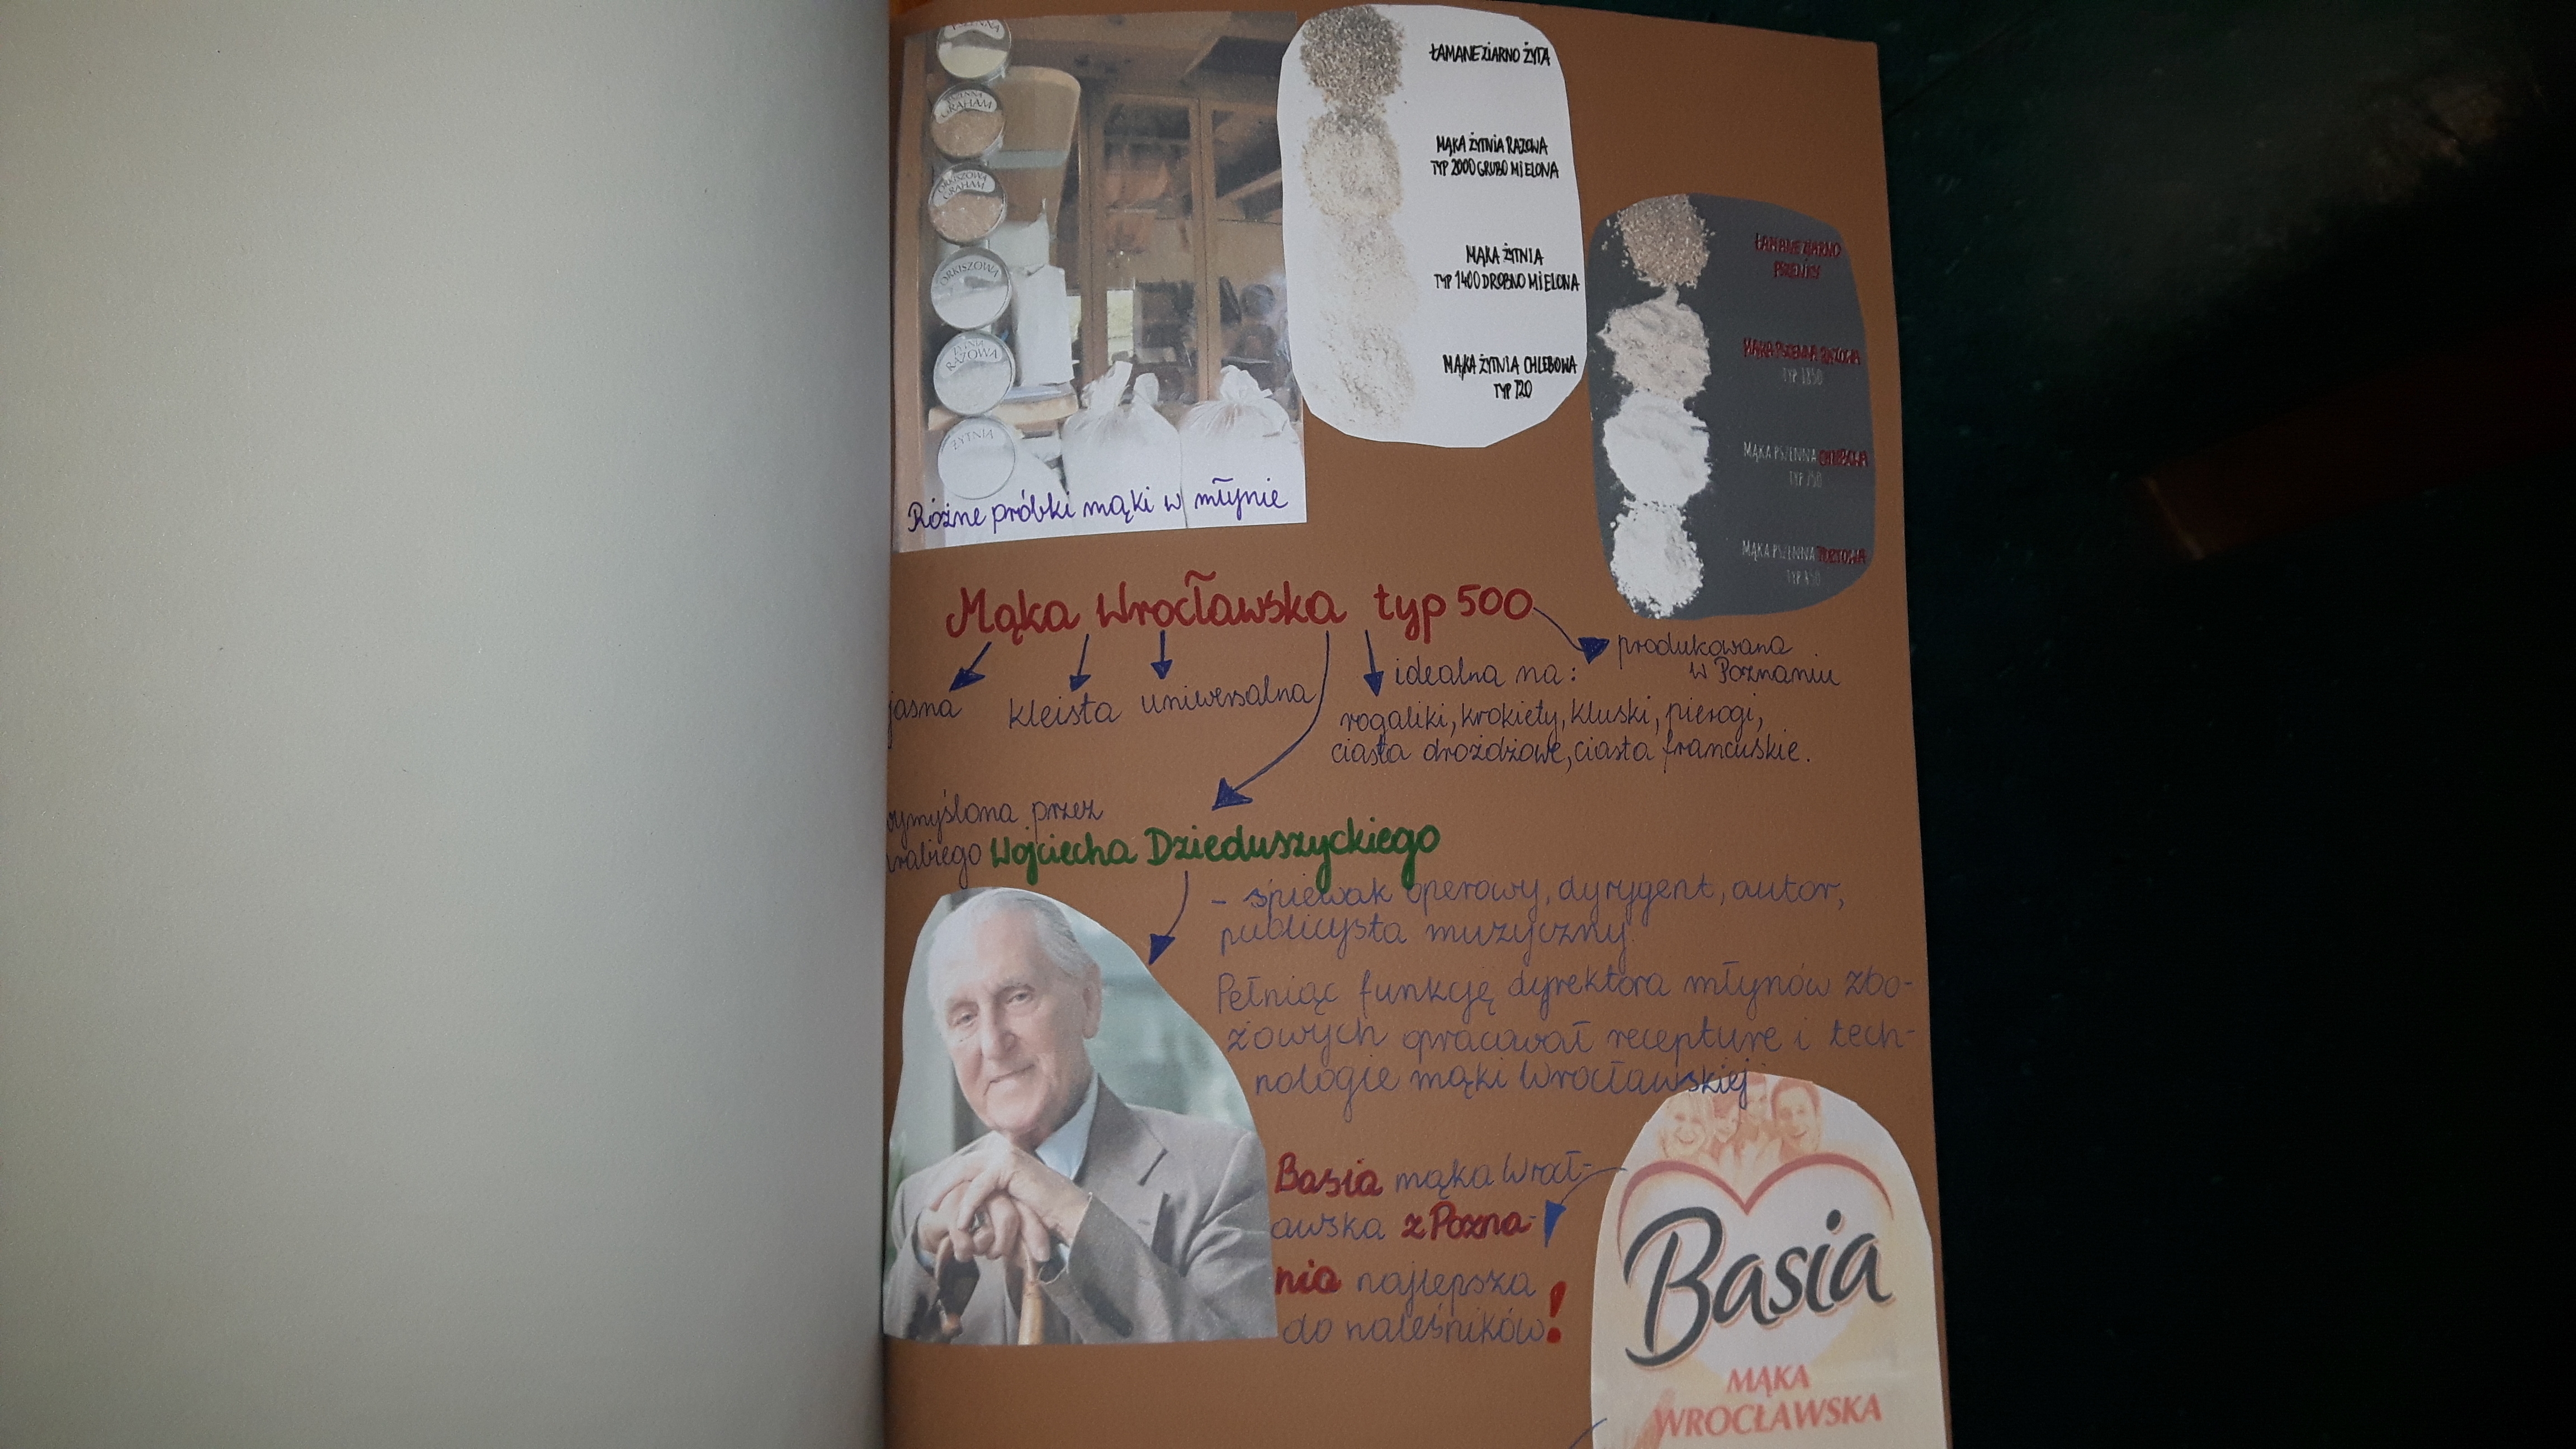 GRAHAM
ORKISZOWA
GRAHAM
ORKISZOWA
ŻYTNIA
RAZOWA
ŻYTNIA
Różne próbki mąki w młynie
ŁAMANE ZIARNO ŻYTA
MĄKA ŻYTNIA RAZOWA
TYP 2000 GRUBO MIELONA
MĄKA ŻYTNIA
TYP 1400 DROBNO MIELONA
MĄKA ŻYTNIA CHLEBOWA
TYP 720
ŁAMANE ZIARNO
PSZENICY
MĄKA PSZENNA RAZOWA
TYP 1850
MĄKA PSZENNA CHLEBOWA
TYP 750
MĄKA PSZENNA TORTOWA
TYP 450
Mąka Wrocławska typ 500
produkowana
w Poznaniu
jasna
kleista
uniwersalna
idealna na:
rogaliki, krokiety, kluski, pierogi,
ciasta drożdżowe, ciasta francuskie.
ymyślona przez
rabiego Wojciecha Dzieduszyckiego
- śpiewak operowy, dyrygent, autor,
publicysta muzyczny.
Pełniąc funkcję dyrektora młynów zbo-
żowych opracował recepturę i tech-
nologie mąki Wrocławskiej
Basia mąka Wrocł-
awska z Pozna-
nia najlepsza
do naleśników!
Basia
MĄKA
WROCŁAWSKA